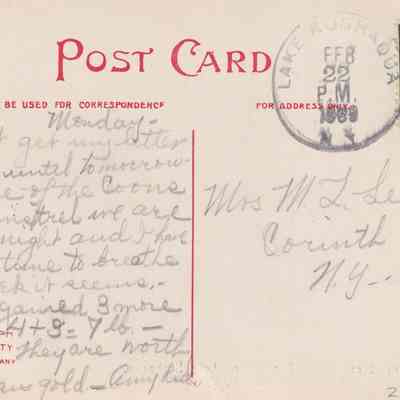 POST CARD
BE USED FOR CORRESPONDENCE
FOR ADDRESS ONLY
LAKE KUSHAQUA
FEB
22
P.M.
1909
Monday-
get my letter
until tomorrow
of the Coons
we are
night and I have
time to breathe
it seems.-
gained 3 more
4+3=7 lb.-
They are worth
gold-
Mrs M. L.
Corinth
N.Y.-
TY
ANY
2